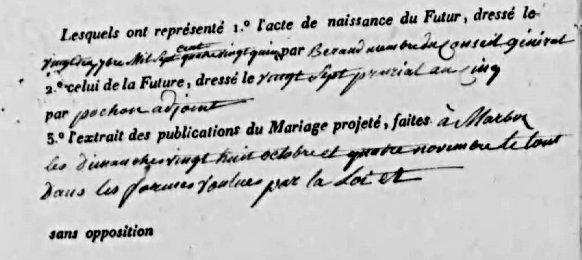 Lesquels ont représenté 1.º l'acte de naissance du Futur, dressé le
vingt dix 7bre Mil Sept cent quatre vingt quinz par Beraud membre du Conseil général
2.º celui de la Future, dressé le vingt Sept prairial an Cinq
par pochon adjoint
3.º l'extrait des publications du Mariage projeté, faites à Marboz
les dimanches vingt huit octobre et quatre novembre le tout
Dans les formes voulues par la Loi et
sans opposition